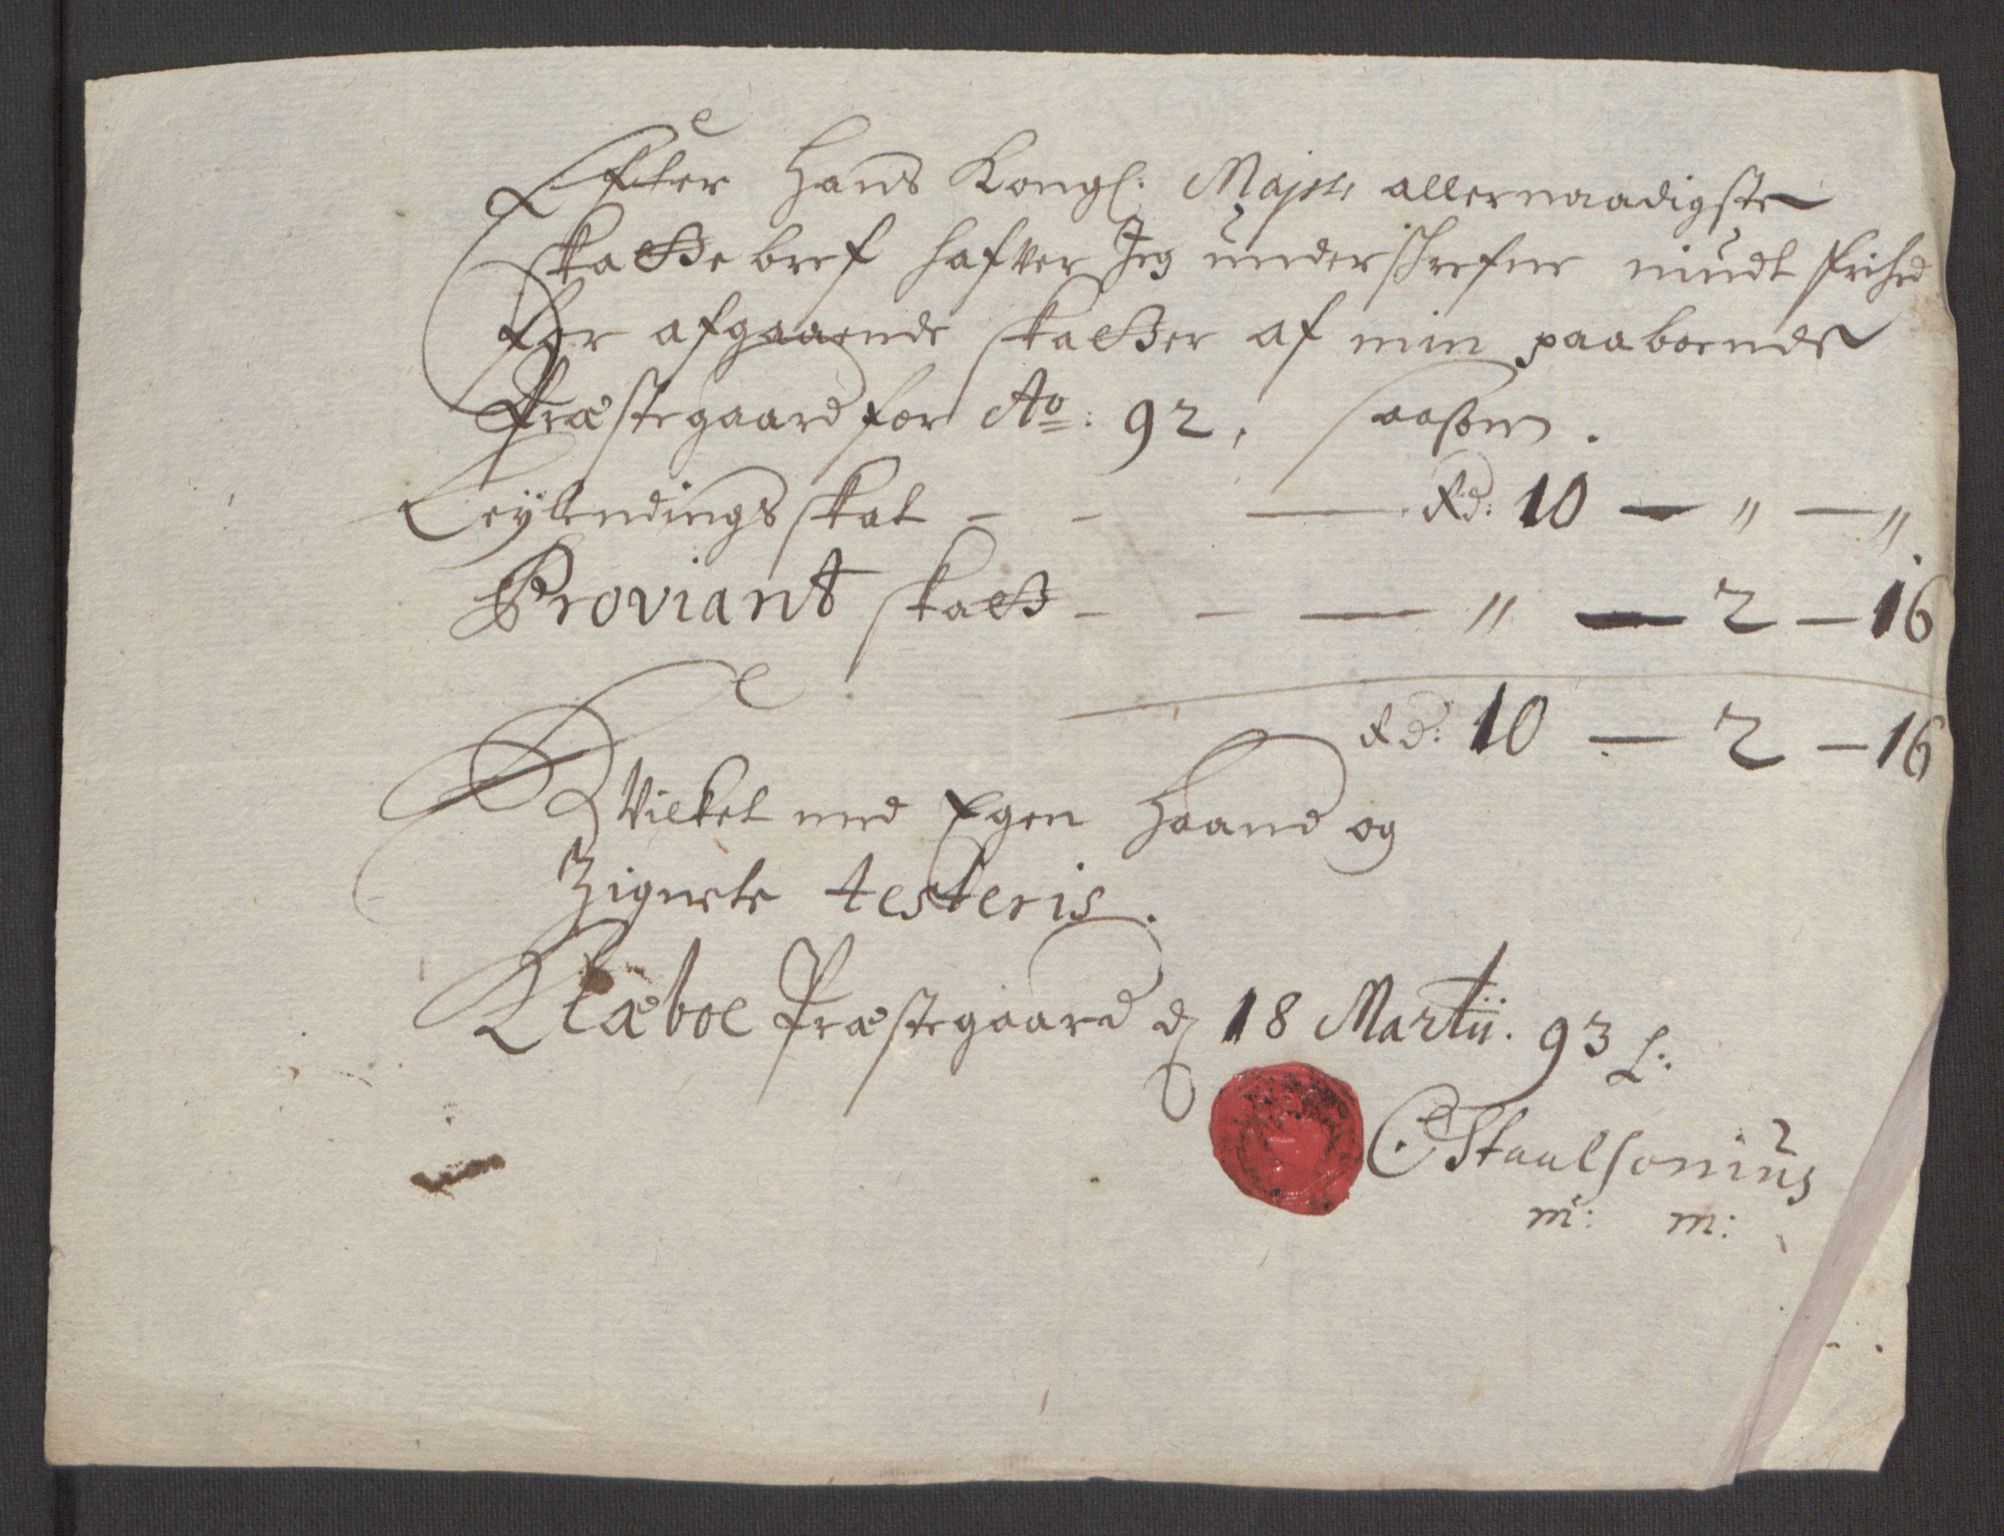 Efter Hans Kongl: Majsts allernaadigste
skatte bref hafver Jeg underschrefne niudt frihed
for afgaaende skatter af min paaboende
Præstegaard for Ao: 92, saasom.
Leylendings skat - - — Rd: 10 — " — "
Proviant skatt - - — " — 2 — 16
Rd: 10 — 2 — 16
Hvilket med Egen Haand og
Zignete testeris.
Klæboe Præstegaard d 18 Martii. 93
CStaulsonius
m: m: